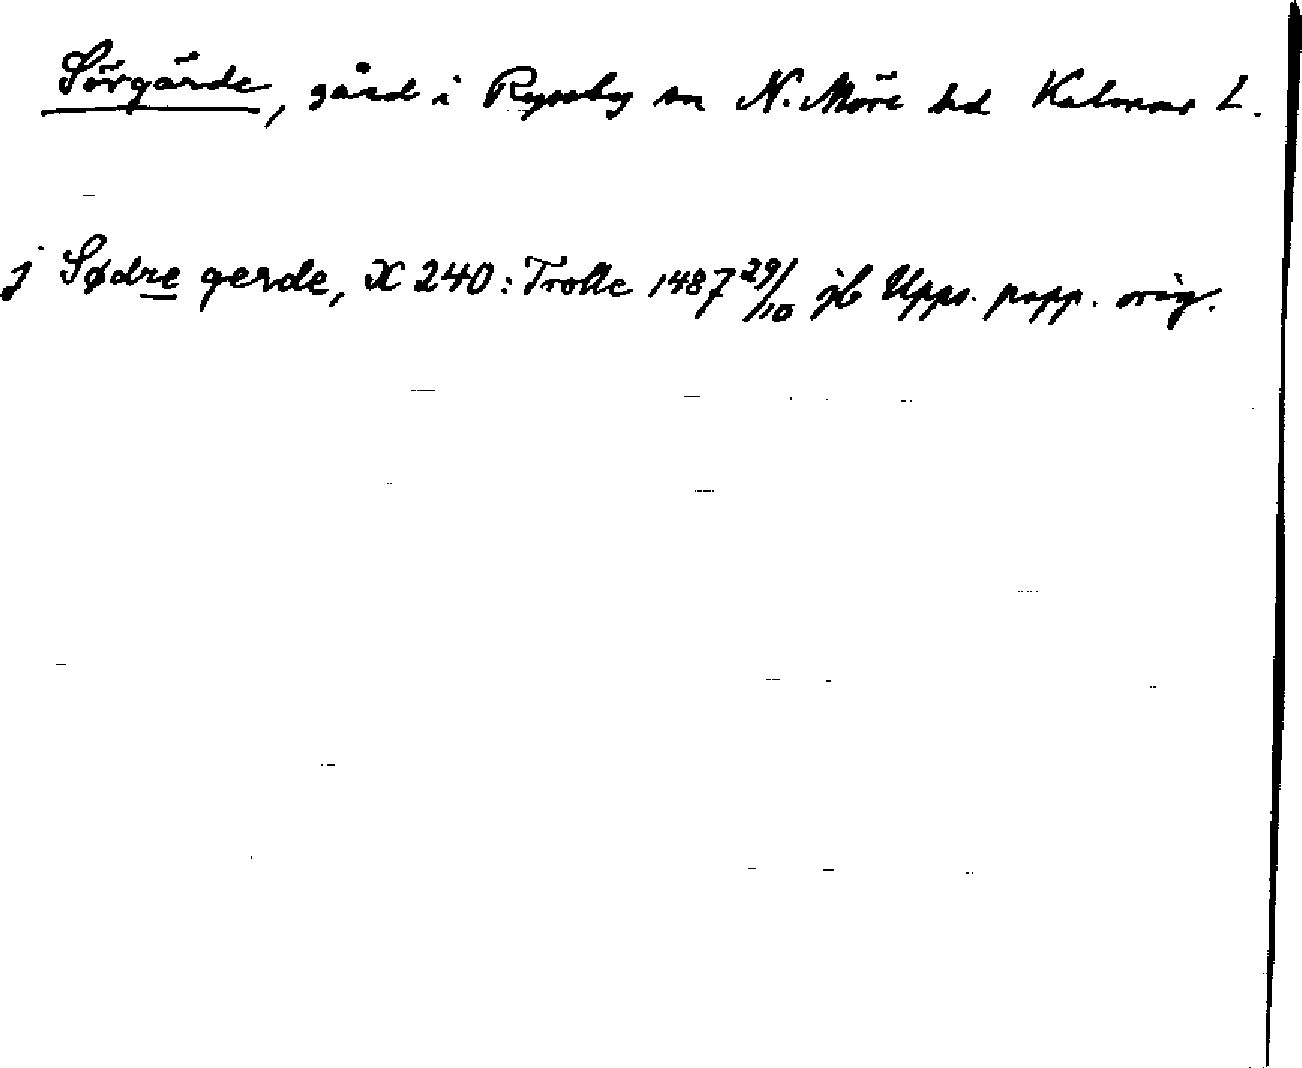 Sörgärde, gård i Ryssby sn N. Möre hd Kalmar L.
j Sødre gerde, X 240: Trolle 1487 29/10 jb Upps. papp. orig.